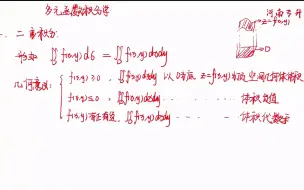 多元函数积分学
河南专升
一、二重积分:
z=f(x,y)
D
形式 ∬f(x,y)dσ = ∬f(x,y)dxdy
几何意义:
f(x,y)≥0, ∬f(x,y)dxdy 以D为底, z=f(x,y)为顶 空间几何体体积
f(x,y)≤0, ∬f(x,y)dxdy ········· 体积负值
f(x,y)有正有负, ∬f(x,y)dxdy ········ 体积代数和